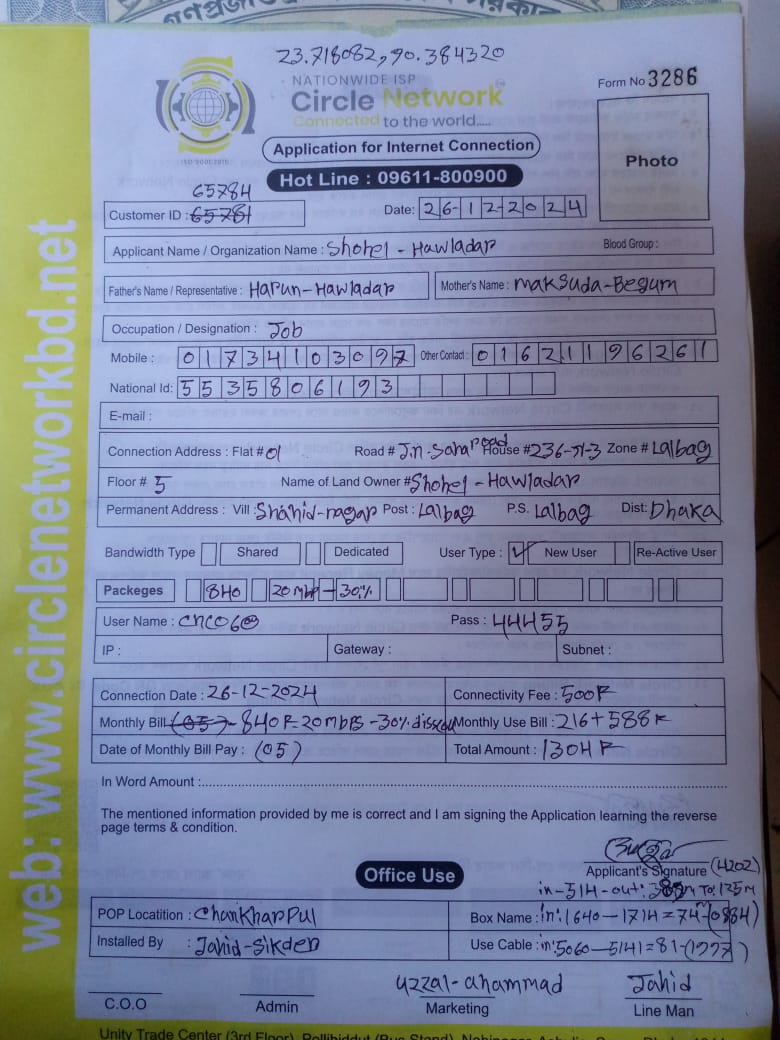 গণপ্রজা
23.718082, 90.384320
NATIONWIDE ISP
Circle Network
Connected to the world.....
Form No 3286
ISO 9001:2015
Application for Internet Connection
Photo
Hot Line : 09611-800900
65784
Customer ID : 65781
Date: 26-12-2024
Applicant Name / Organization Name : Shohel - Hawladar
Blood Group :
Father's Name / Representative : Harun-Hawladar
Mother's Name : Maksuda-Begum
Occupation / Designation : Job
Mobile : 01734103097 Other Contact : 01621196261
National Id: 5535806193
E-mail :
Connection Address : Flat # 01 Road # J.n. Saha road House #236-J1-3 Zone # Lalbag
Floor # 5 Name of Land Owner # Shohel - Hawladar
Permanent Address : Vill : Shahid-nagar Post : Lalbag P.S. Lalbag Dist: Dhaka
Bandwidth Type Shared Dedicated User Type : ✓ New User Re-Active User
Packeges 840 20 mbp - 30%
User Name : Pass : 44455
IP : Gateway : Subnet :
Connection Date : 26-12-2024 Connectivity Fee : 500
Monthly Bill (05) - 840 20mbps -30% Monthly Use Bill : 216+588
Date of Monthly Bill Pay : (05) Total Amount : 1304
In Word Amount :
The mentioned information provided by me is correct and I am signing the Application learning the reverse
page terms & condition.
Applicant's Signature (4202)
Office Use
in-514-out: To: 135M
POP Locatition : Chankharpul
Box Name : in: 1640-1714=74-(0884)
Installed By : Jahid-Sikder
Use Cable : in: 5060-5141=81-(1777)
C.O.O
Admin
Uzzal-ahammad
Marketing
Jahid
Line Man
Unity Trade Center (3rd Floor), (Bus Stand),
web: www.circlenetworkbd.net